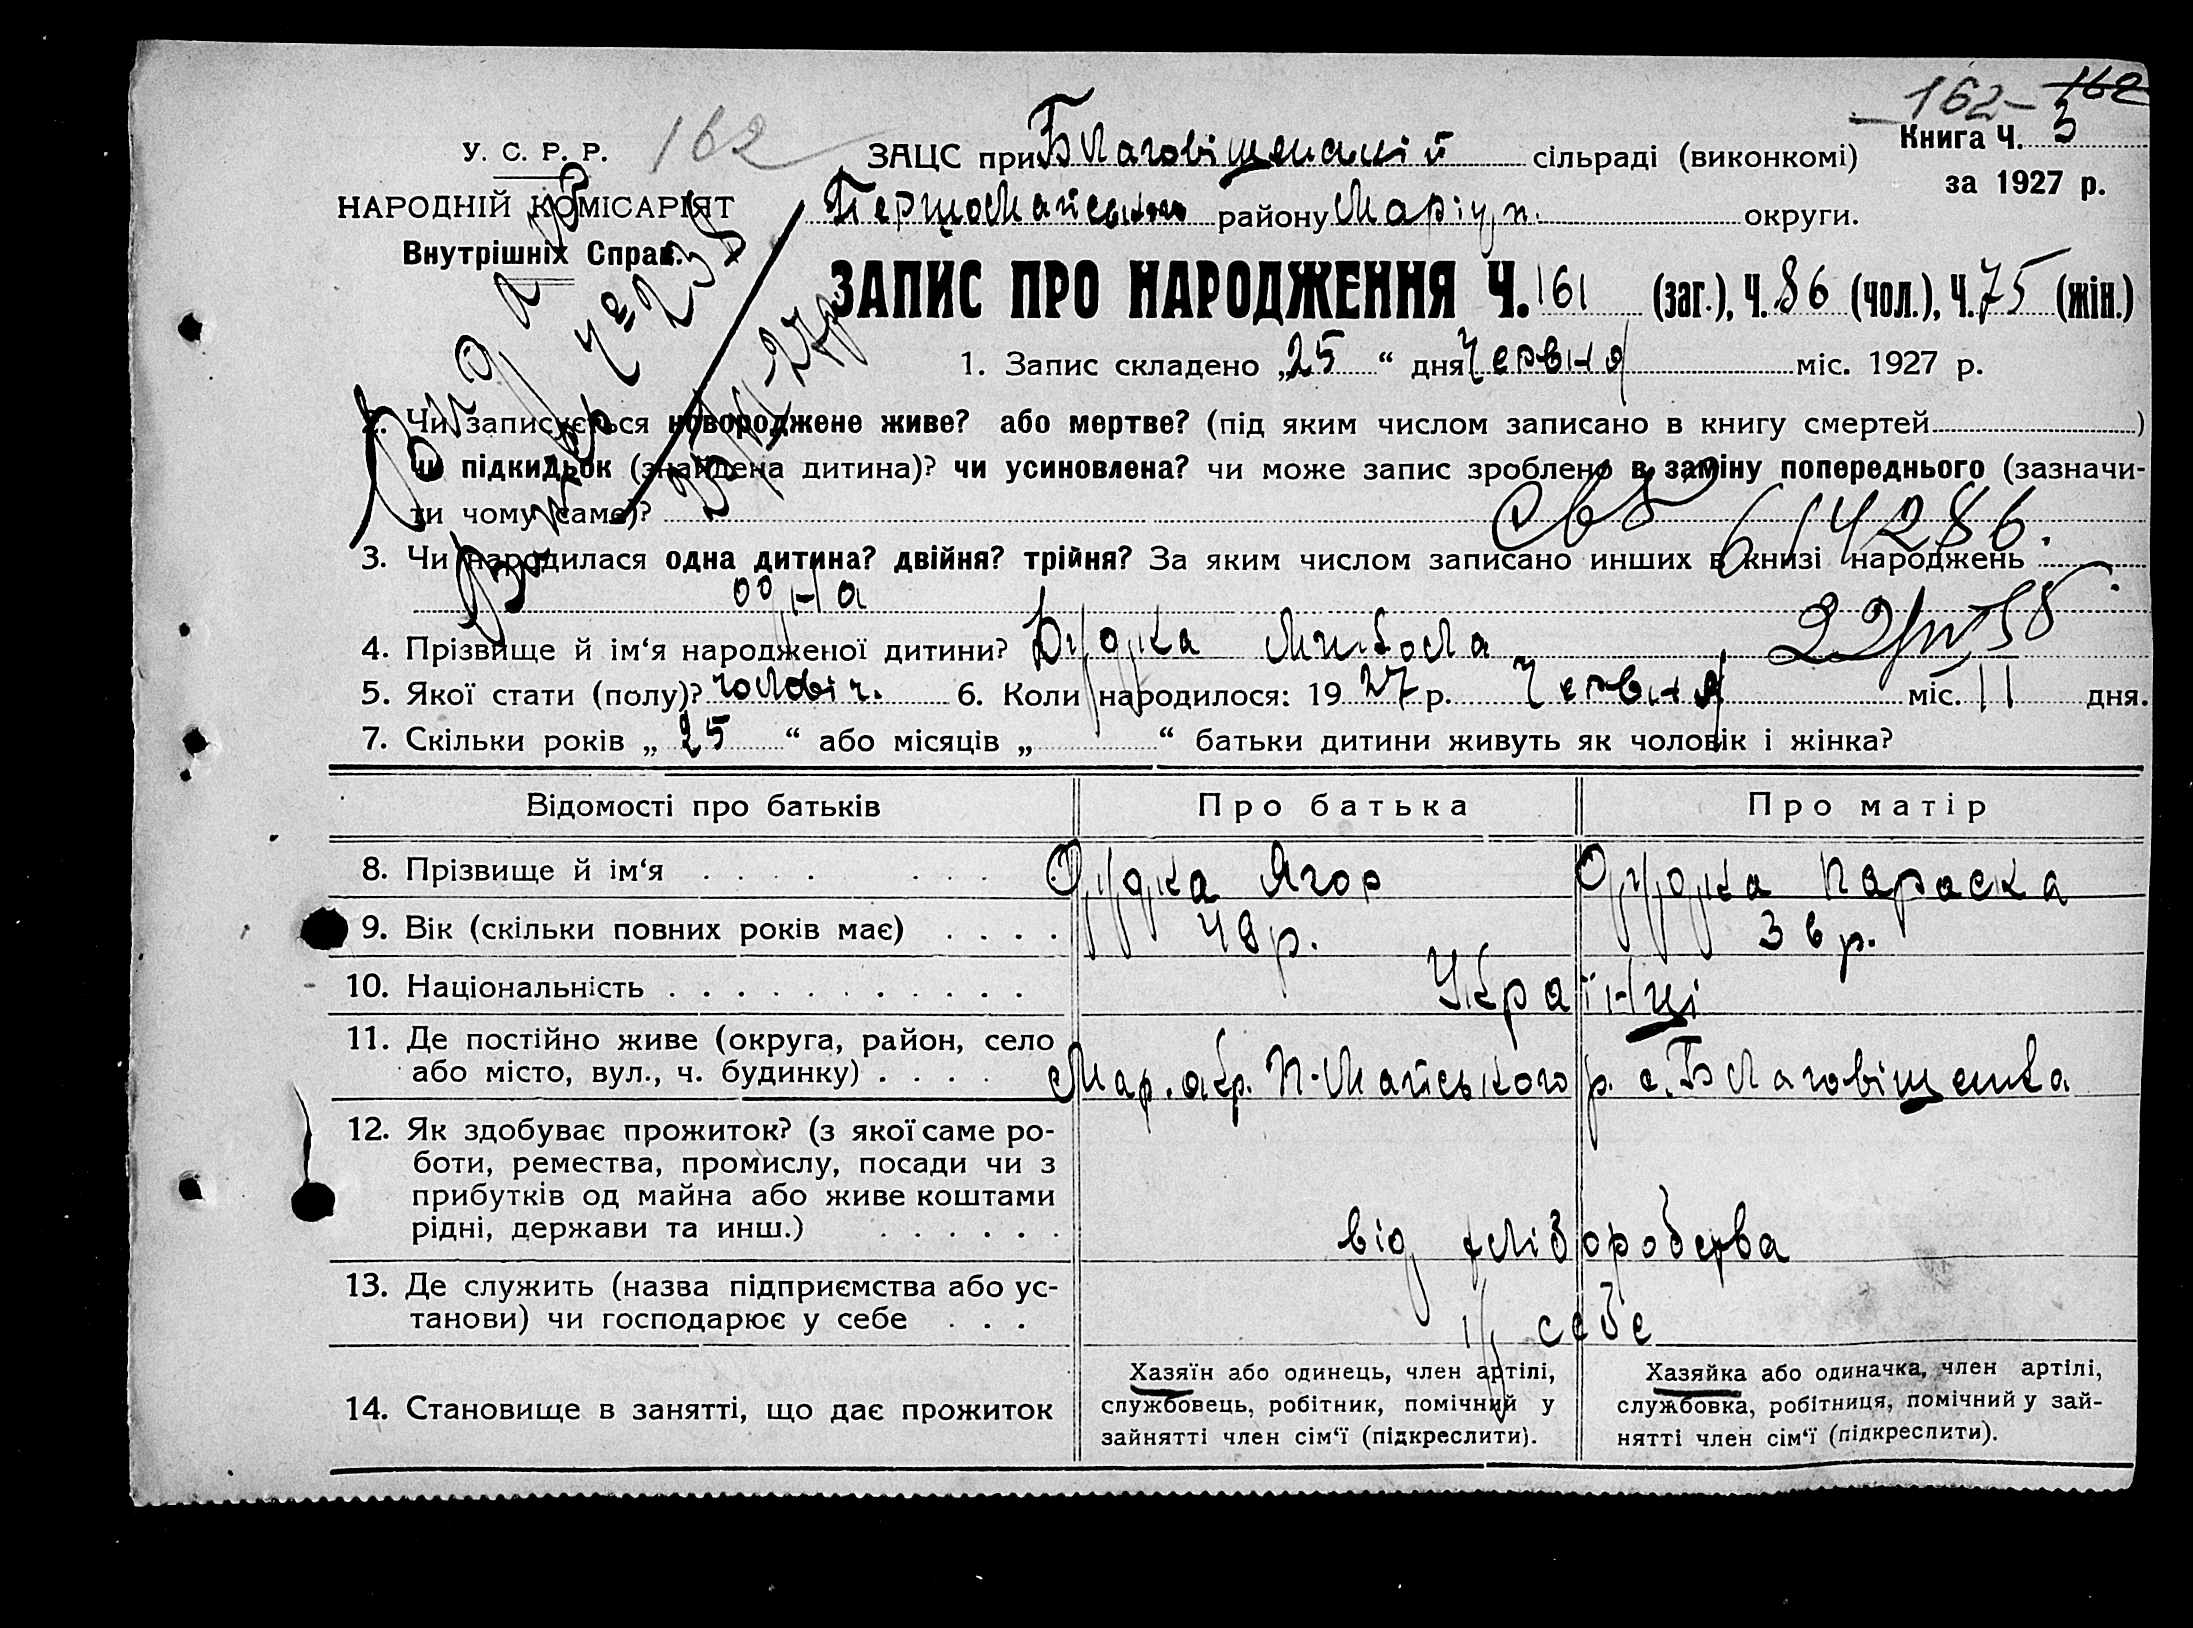 162- 162
Книга Ч. 3
за 1927 р.
У. С. Р. Р.
162
НАРОДНІЙ КОМІСАРІЯТ
Внутрішніх Справ.
ЗАЦС при Благовіщенській сільраді (виконкомі)
Першомайського району Маріуп. округи.
ЗАПИС ПРО НАРОДЖЕННЯ Ч. 161 (заг.), Ч. 86 (чол.), Ч. 75 (жін.)
1. Запис складено „25“ дня Червня міс. 1927 р.
2. Чи записується новороджене живе? або мертве? (під яким числом записано в книгу смертей)
чи підкидьок (знайдена дитина)? чи усиновлена? чи може запис зроблено в заміну попереднього (зазначи-
ти чому саме)?
3. Чи народилася одна дитина? двійня? трійня? За яким числом записано инших в книзі народжень
одна
4. Прізвище й ім‘я народженої дитини? Микола
5. Якої стати (полу)? чоловіч. 6. Коли народилося: 1927 р. Червня міс. 11 дня.
7. Скільки років „25“ або місяців „ “ батьки дитини живуть як чоловік і жінка?
Відомості про батьків Про батька Про матір
8. Прізвище й ім‘я Ягор Параска
9. Вік (скільки повних років має) р. р.
10. Національність Українці
11. Де постійно живе (округа, район, село
або місто, вул., ч. будинку) Мар. окр. П-Майського р. с. Благовіщенка
12. Як здобуває прожиток? (з якої саме ро-
боти, ремества, промислу, посади чи з
прибутків од майна або живе коштами
рідні, держави та инш.) від хліборобства
13. Де служить (назва підприємства або ус-
танови) чи господарює у себе у себе
14. Становище в занятті, що дає прожиток
Хазяїн або одинець, член артілі,
службовець, робітник, помічний у
зайнятті член сім‘ї (підкреслити).
Хазяйка або одиначка, член артілі,
службовка, робітниця, помічний у зай-
нятті член сім‘ї (підкреслити).